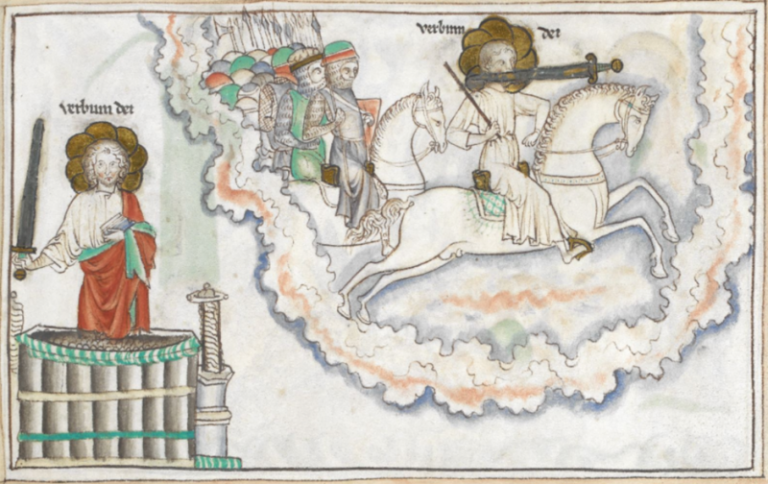 verbum dei
verbum dei